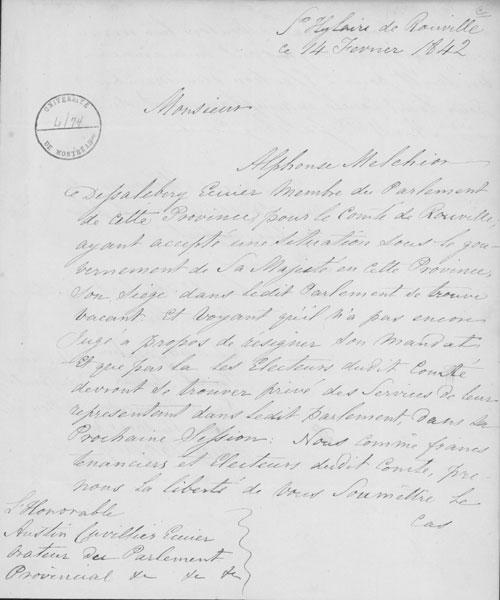 St Hylaire de Rouville
ce 14 Fevrier 1842
UNIVERSITÉ
4/74
DE MONTRÉAL
Monsieur
Alphonse Melchior
DeSalaberry Ecuier Membre du Parlement
de Cette Province, pour le Comté de Rouville,
ayant accepté une Situation Sous le gou-
vernement de Sa Majesté en cette Province,
Son Siège dans ledit Parlement se trouve
vacant. Et voyant qu'il n'a pas encore
Jugé a propos de resigner Son Mandat,
Et que par la les Electeurs dudit Comté
devront se trouver privé des Services de leur
représentent dans ledit parlement, dans Sa
Prochaine Session: Nous comme francs
tenanciers et Electeurs dudit Comté, pre-
nons la liberté de vous Soumettre le
Cas
L'Honorable
Austin Cuvillier Ecuier
Orateur du Parlement
Provincial &c &c &c